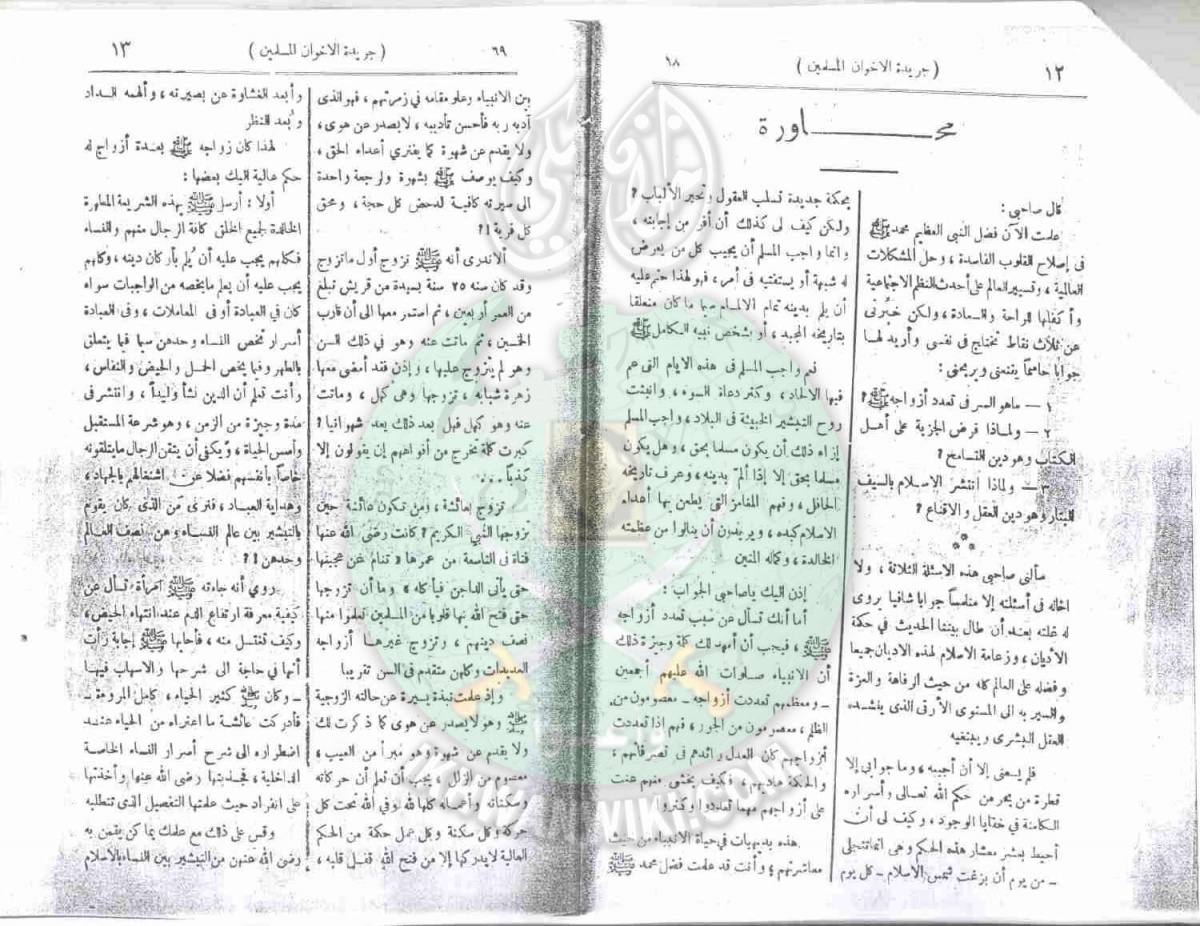 ١٢
( جريدة الاخوان المسلمين )
٦٨
محـــــاورة
قال صاحبي :
علمت الآن فضل النبي العظيم محمد ﷺ
فى إصلاح القلوب الفاسدة ، وحل المشكلات
العالمية ، وتسيير العالم على أحدث النظم الاجتماعية
وأكفلها للراحة والسعادة ، ولكن خبرنى
عن ثلاث نقاط تختلج فى نفسى وأريد لها
جوابا حاسما يقنعنى ويريحنى :
١ — ماهو السر فى تعدد أزواجه ﷺ ؟
٢ — ولماذا فرض الجزية على أهل
الكتاب وهو دين التسامح ؟
٣ — ولماذا انتشر الاسلام بالسيف
البتار وهو دين العقل والاقناع ؟
***
سألنى صاحبي هذه الاسئلة الثلاثة ، ولا
اخاله فى أسئلته إلا متلمسا جوابا شافيا يروى
له غلته بعد أن طال بيننا الحديث في حكمة
الأديان ، وزعامة الاسلام لهذه الاديان جميعا
وفضله على العالم كله من حيث الرفاهة والعزة
والسير به الى المستوى الأرقى الذى ينشده
العقل البشرى ويبتغيه
فلم يسعنى إلا أن أجيبه ، وما جوابي إلا
قطرة من بحر من حكم الله تعالى وأسراره
الكامنة في خفايا الوجود ، وكيف لى أن
أحيط بعشر معشار هذه الحكم وهى انما تتجلى
ـ من يوم أن بزغت شمس الاسلام ـ كل يوم
بحكمة جديدة تسلب العقول وتحير الألباب ؟
ولكن كيف لى كذلك أن أفر من إجابته ،
وانما واجب المسلم أن يجيب كل من يعرض
له شبهة أو يستفتيه فى أمر ، فهو لهذا حتم عليه
أن يلم بدينه تمام الالمام سيما ما كان متعلقا
بتاريخه المجيد ، أو بشخص نبيه الكامل ﷺ
نعم واجب المسلم فى هذه الايام التى عم
فيها الالحاد ، وكثر دعاة السوء ، وانبثت
روح التبشير الخبيثة فى البلاد ، واجب المسلم
إزاء ذلك أن يكون مسلما بحق ، وهل يكون
مسلما بحق إلا إذا ألمّ بدينه ، وعرف تاريخه
الحافل ، وفهم المغامز التى يطعن بها أعداء
الاسلام كبده ، ويريدون أن ينالوا من عظمته
الخالدة ، وكماله المتين
إذن اليك ياصاحبى الجواب :
أما أنك تسأل عن سبب تعدد أزواجه
ﷺ ، فيجب أن أمهد لك كلمة وجيزة ذلك
أن الانبياء صلوات الله عليهم أجمعين
ـ ومعظمهم تعددت أزواجه ـ معصومون من
الظلم ، معصومون من الجور ، فهم إذا تعددت
أزواجهم كان العدل رائدهم فى تصرفاتهم ،
والحكمة هاديهم ، فكيف يخشى منهم عنت
على أزواجهم مهما تعددوا وكثروا
هذه بديهيات في حياة الانبياء من حيث
معاشرتهم ؛ وأنت قد علمت فضل محمد ﷺ
٦٩
( جريدة الاخوان المسلمين )
١٣
بين الانبياء وعلو مقامه في زمرتهم ، فهو الذى
أدبه ربه فأحسن تأديبه ، لا يصدر عن هوى ،
ولا يقدم عن شهوة كما يفترى أعداء الحق ،
وكيف يوصف ﷺ بشهوة ولرجعة واحدة
الى سيرته كافية لدحض كل حجة ، ومحق
كل فرية ا ؟
ألا تدرى أنه ﷺ تزوج أول ما تزوج
وقد كان سنه ٢٥ سنة بسيدة من قريش تبلغ
من العمر أربعين ، ثم استمر معها الى أن قارب
الخمسين ، ثم ماتت عنه وهو في ذلك السن
وهو لم يتزوج عليها ، وإذن فقد أمضى معها
زهرة شبابه ، تزوجها وهى كهل ، وماتت
عنه وهو كهل فهل بعد ذلك يعد شهوانيا ؟
كبرت كلمة تخرج من أفواههم إن يقولون إلا
كذبا . . .
تزوج بعائشة ، ومن تكون عائشة حين
تزوجها النبي الكريم ؟ كانت رضى الله عنها
فتاة فى التاسعة من عمرها « تنام عن عجينها
حتى يأتى الداجن فيأكله » وما أن تزوجها
حتى فتح الله بها قلوبا من المسلمين تعلموا منها
نصف دينهم ، وتزوج غيرها أزواجه
العديدات وكلهن متقدم فى السن تقريبا
وإذ علمت نبذة يسيرة عن حالته الزوجية
ﷺ وهو لا يصدر عن هوى كما ذكرت لك
ولا يقدم عن شهوة وهو مبرأ من العيب ،
معصوم من الزلل ، يجب أن تعلم أن حركاته
وسكناته وأعماله كلها لله وفي الله تحت كل
حركة وكل سكنة وكل عمل حكمة من الحكم
العالية لا يدركها إلا من فتح الله قفل قلبه ،
وأبعد الغشاوة عن بصيرته ، وألهمه السداد
وبُعد النظر
لهذا كان زواجه ﷺ بعدة أزواج له
حكم عالية اليك بعضها :
أولا : أرسل ﷺ بهذه الشريعة المطهرة
الخالدة لجميع الخلق كافة الرجال منهم والنساء
فكلهم يجب عليه أن يُلم بأركان دينه ، وكلهم
يجب عليه أن يعلم مايخصه من الواجبات سواء
كان في العبادة أو فى المعاملات ، وفى العبادة
أسرار تخص النساء وحدهن سيما فيما يتعلق
بالطهر وفيما يخص الحمل والحيض والنفاس ،
وأنت تعلم أن الدين نشأ وليداً ، وانتشر فى
مدة وجيزة من الزمن ، وهو شرعة المستقبل
وأمس الحياة ، ويكفى أن يتقن الرجال مايتلقونه
خاصاً بأنفسهم فضلا عن اشتغالهم بالجهاد ،
وهداية العباد ، فترى من الذى كان يقوم
بالتبشير بين عالم النساء وهن نصف العالم
وحدهن ا ؟
روي أنه جاءته ﷺ امرأة تسأل عن
كيفية معرفة ارتفاع الدم عند انتهاء الحيض ،
وكيف تغتسل منه ، فأجابها ﷺ إجابة رأت
أنها في حاجة الى شرحها والاسهاب فيها
ـ وكان ﷺ كثير الحياء ، كامل المروءة ـ
فأدركت عائشة ما اعتراه من الحياء عند
اضطراره الى شرح أسرار النساء الخاصة
الداخلية ، فجذبتها رضى الله عنها وأخذتها
على انفراد حيث علمتها التفصيل الذى تتطلبه
وقس على ذلك مع علمك بما كن يقمن به
رضى الله عنهن من التبشير بين النساء بالاسلام